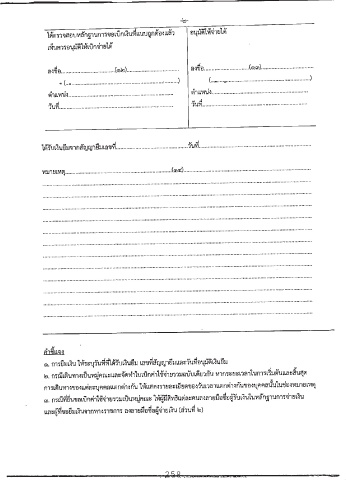 -๒-
ได้ตรวจสอบหลักฐานการขอเบิกเงินที่แนบถูกต้องแล้ว
เห็นควรอนุมัติให้เบิกจ่ายได้
อนุมัติให้จ่ายได้
ลงชื่อ..............(๑๒)..............
(..............................)
ตำแหน่ง..............................
วันที่..............................
ลงชื่อ..............(๑๓)..............
(..............................)
ตำแหน่ง..............................
วันที่..............................
ได้รับเงินยืมจากสัญญายืมเลขที่..............................วันที่..............................
หมายเหตุ..............................(๑๔)..............................
คำชี้แจง
๑. การยืมเงิน ให้ระบุวันที่ที่ได้รับเงินยืม เลขที่สัญญายืมและวันที่อนุมัติเงินยืม
๒. กรณีเดินทางเป็นหมู่คณะและจัดทำใบเบิกค่าใช้จ่ายรวมฉบับเดียวกัน หากระยะเวลาในการเริ่มต้นและสิ้นสุด
การเดินทางของแต่ละบุคคลแตกต่างกัน ให้แสดงรายละเอียดของวันเวลาแตกต่างกันของบุคคลนั้นในช่องหมายเหตุ
๓. กรณีที่ยื่นขอเบิกค่าใช้จ่ายรวมเป็นหมู่คณะ ให้ผู้มีสิทธิแต่ละคนลงลายมือชื่อผู้รับเงินในหลักฐานการจ่ายเงิน
และผู้ที่ขอยืมเงินจากทางราชการ ลงลายมือชื่อผู้จ่ายเงิน (ส่วนที่ ๒)
258